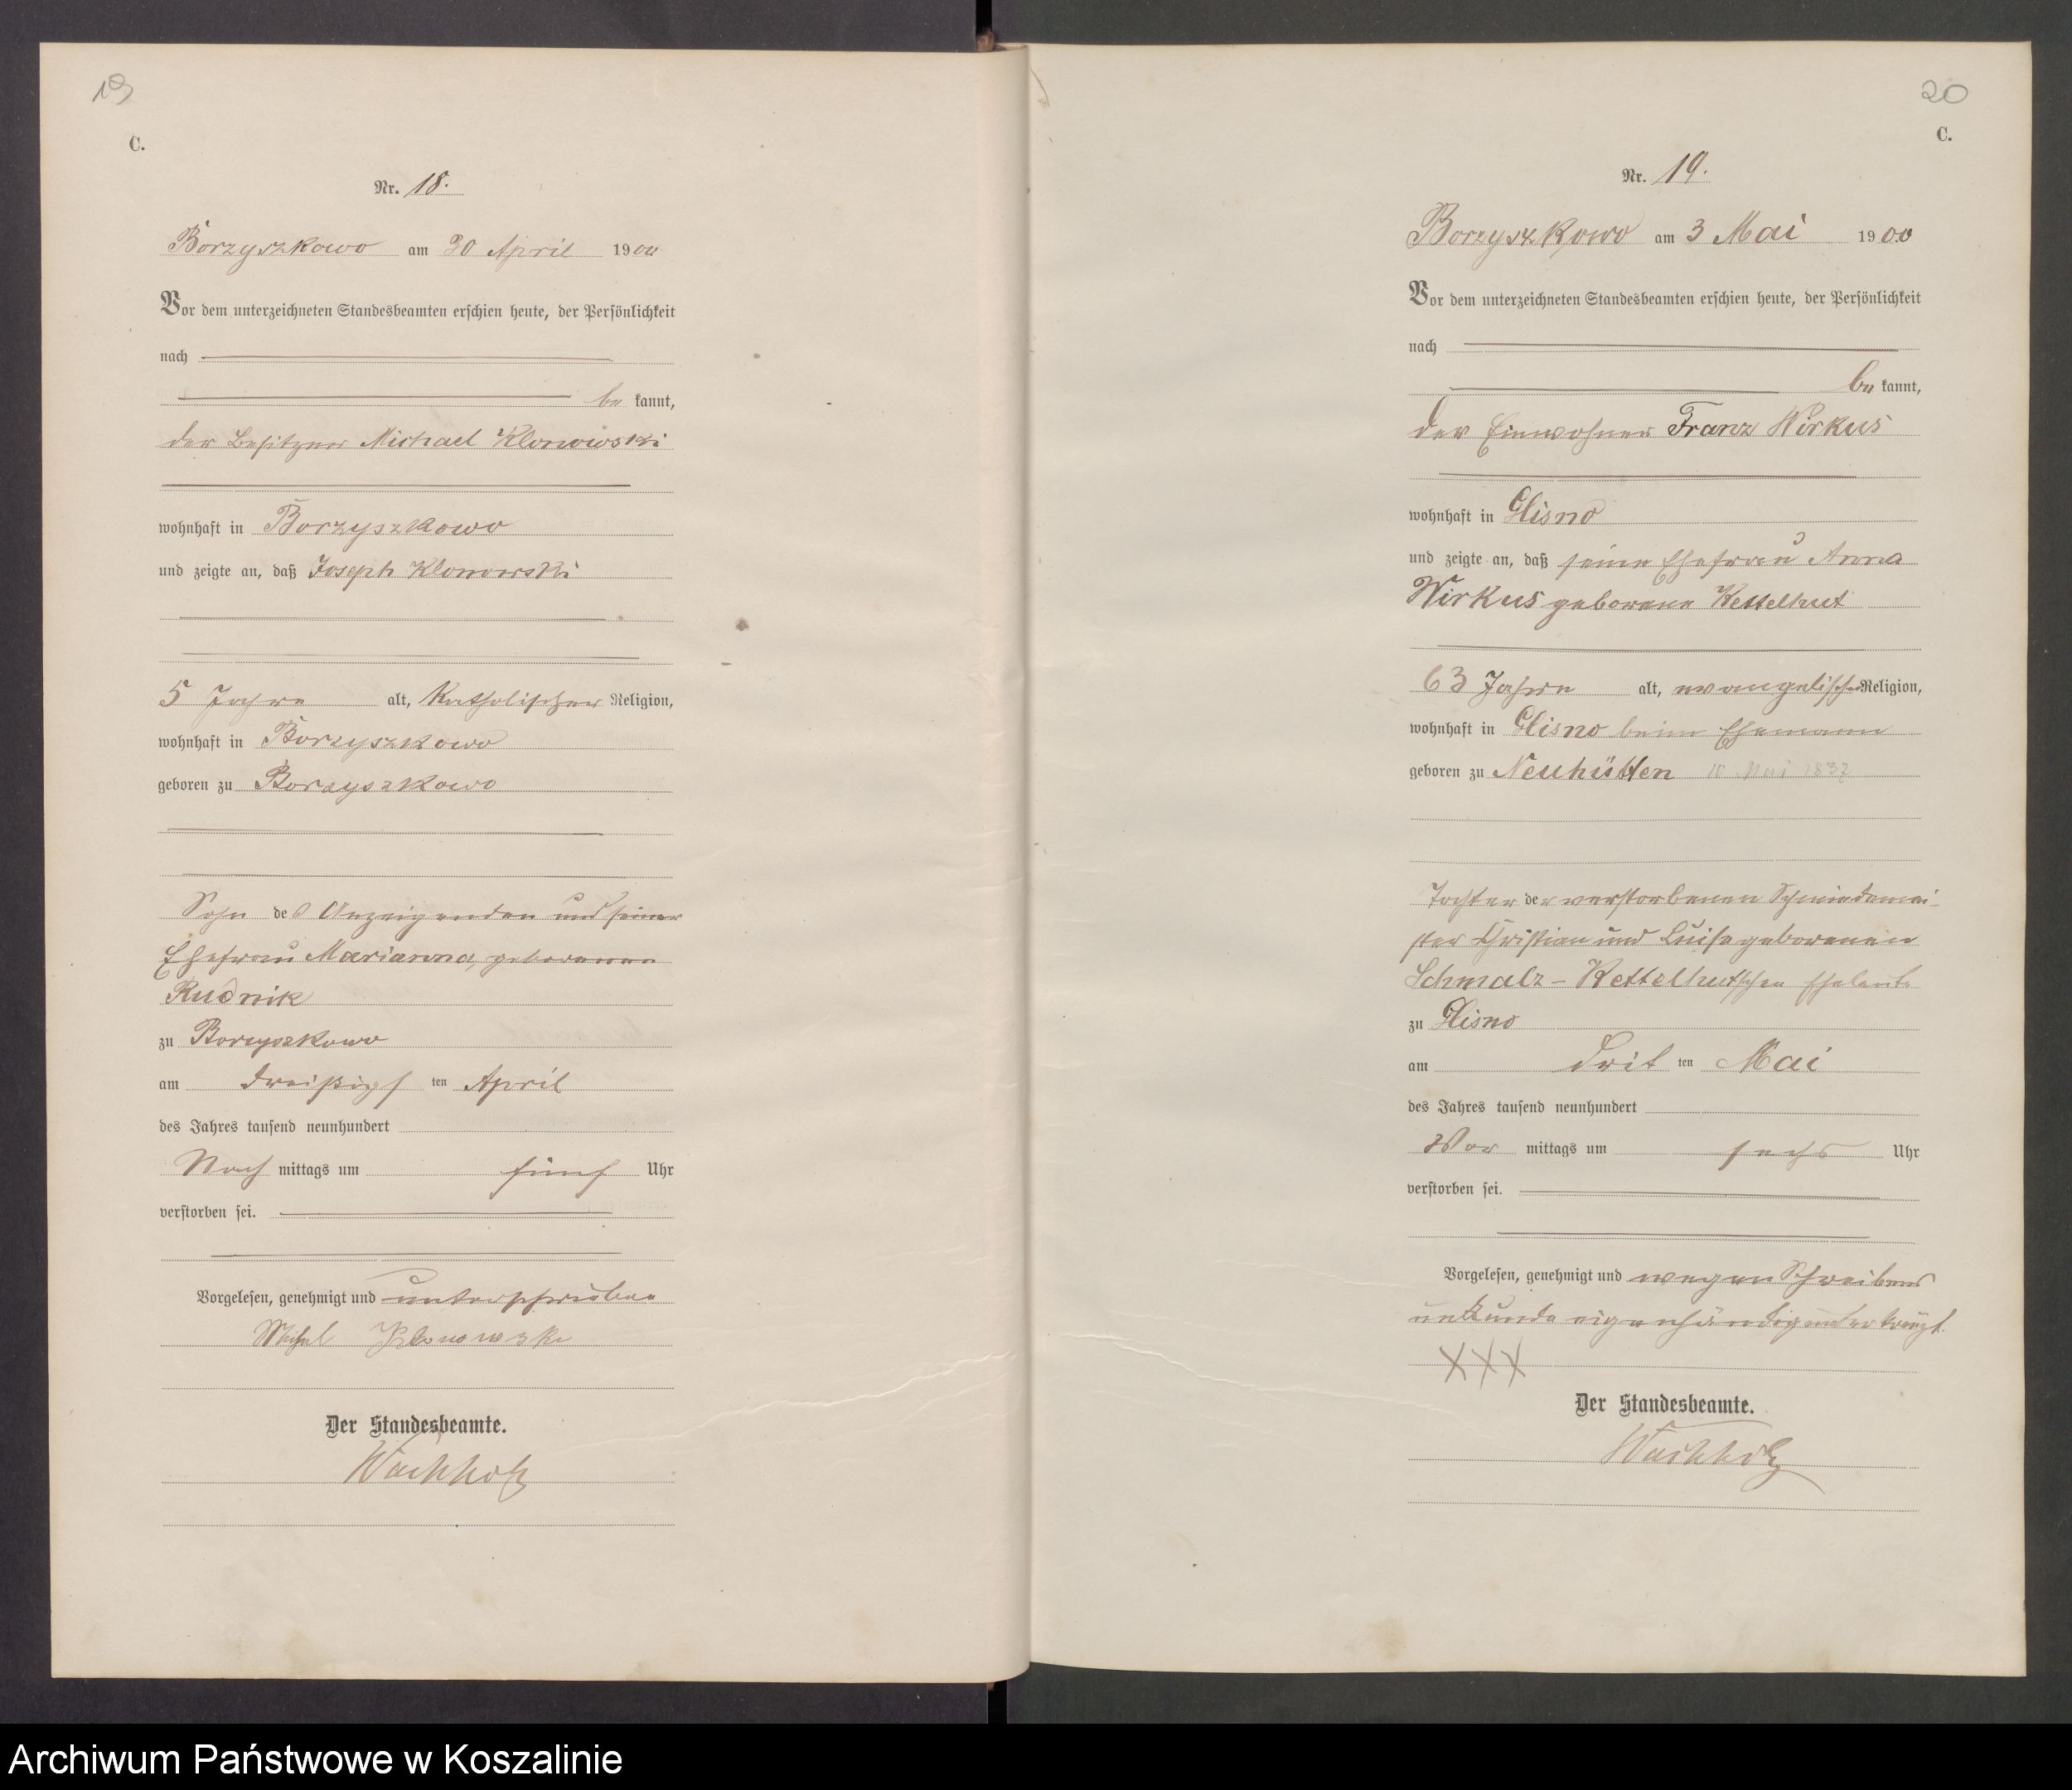 19
C.
Nr. 18.
Borzyszkowo am 30 April 1900
Vor dem unterzeichneten Standesbeamten erschien heute, der Persönlichkeit
nach
be kannt,
der Besitzer Michael Klonowski
wohnhaft in Borzyszkowo
und zeigte an, daß Joseph Klonowski
5 Jahre alt, katholischer Religion,
wohnhaft in Borzyszkowo
geboren zu Borzyszkowo
Sohn des Anzeigenden und seiner
Ehefrau Marianna, geborenen
Rudnik
zu Borzyszkowo
am dreißigs ten April
des Jahres tausend neunhundert
Nach mittags um fünf Uhr
verstorben sei.
Vorgelesen, genehmigt und unterschrieben
Michal Klonowski
Der Standesbeamte.
Wachholz
20
C.
Nr. 19.
Borzyszkowo am 3 Mai 1900
Vor dem unterzeichneten Standesbeamten erschien heute, der Persönlichkeit
nach
be kannt,
der Einwohner Franz Wirkus
wohnhaft in Glisno
und zeigte an, daß seine Ehefrau Anna
Wirkus geborene Kettelhut
63 Jahre alt, evangelischer Religion,
wohnhaft in Glisno beim Ehemann
geboren zu Neuhütten 10 Mai 1837
Tochter der verstorbenen Schmiedemei-
ster Christian und Luise geborenen
Schmalz - Kettelhutschen Eheleute
zu Glisno
am drit ten Mai
des Jahres tausend neunhundert
Vor mittags um sechs Uhr
verstorben sei.
Vorgelesen, genehmigt und wegen Schreibens
unkunde eigenhändig unterkreuzt.
XXX
Der Standesbeamte.
Wachholz
Archiwum Państwowe w Koszalinie